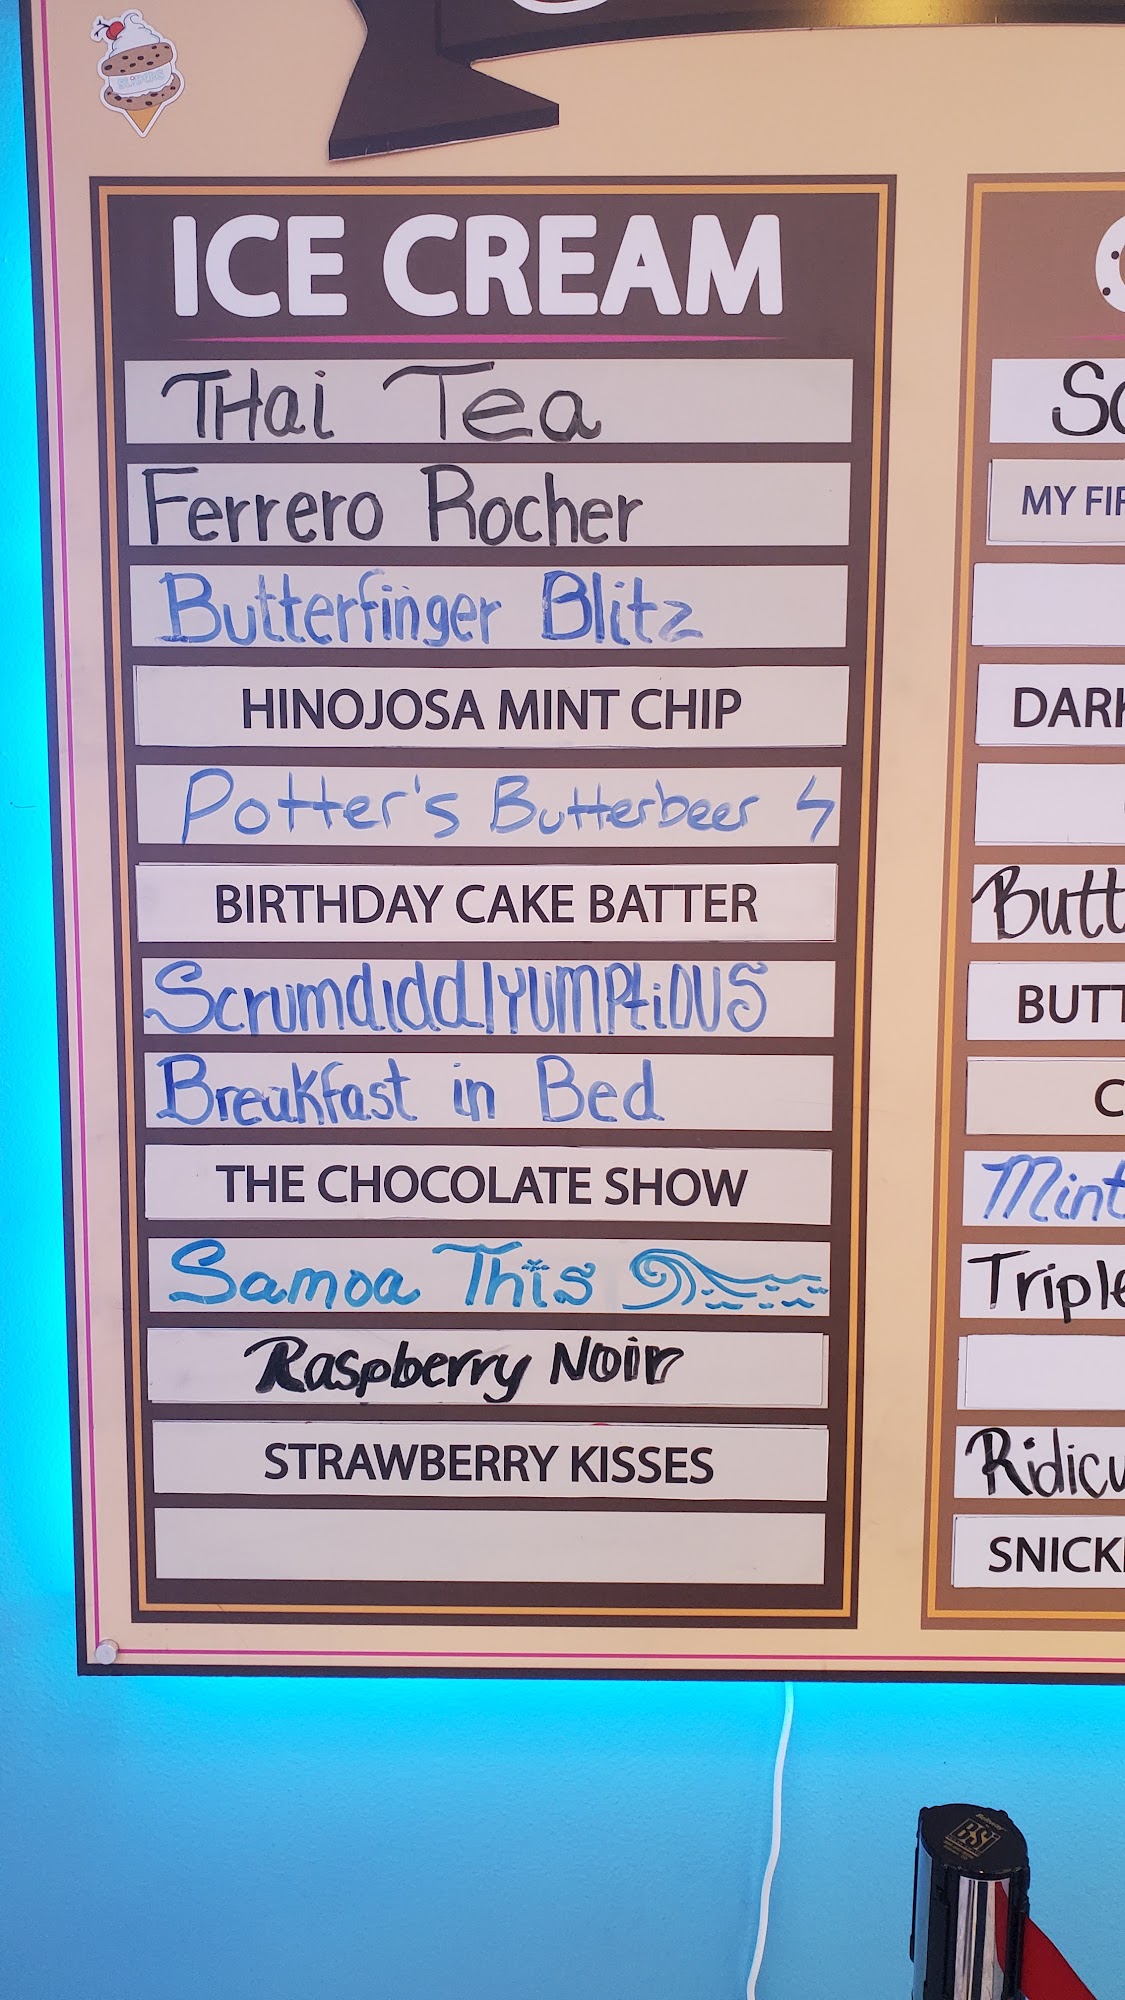 ICE CREAM
THai Tea
Ferrero Rocher
Butterfinger Blitz
HINOJOSA MINT CHIP
Potter's Butterbeer
BIRTHDAY CAKE BATTER
ScrumdiddlyUMPtiOUS
Breakfast in Bed
THE CHOCOLATE SHOW
Samoa This
Raspberry Noir
STRAWBERRY KISSES
So
MY FIR
DARK
Butt
BUTT
C
Mint
Triple
Ridicu
SNICK